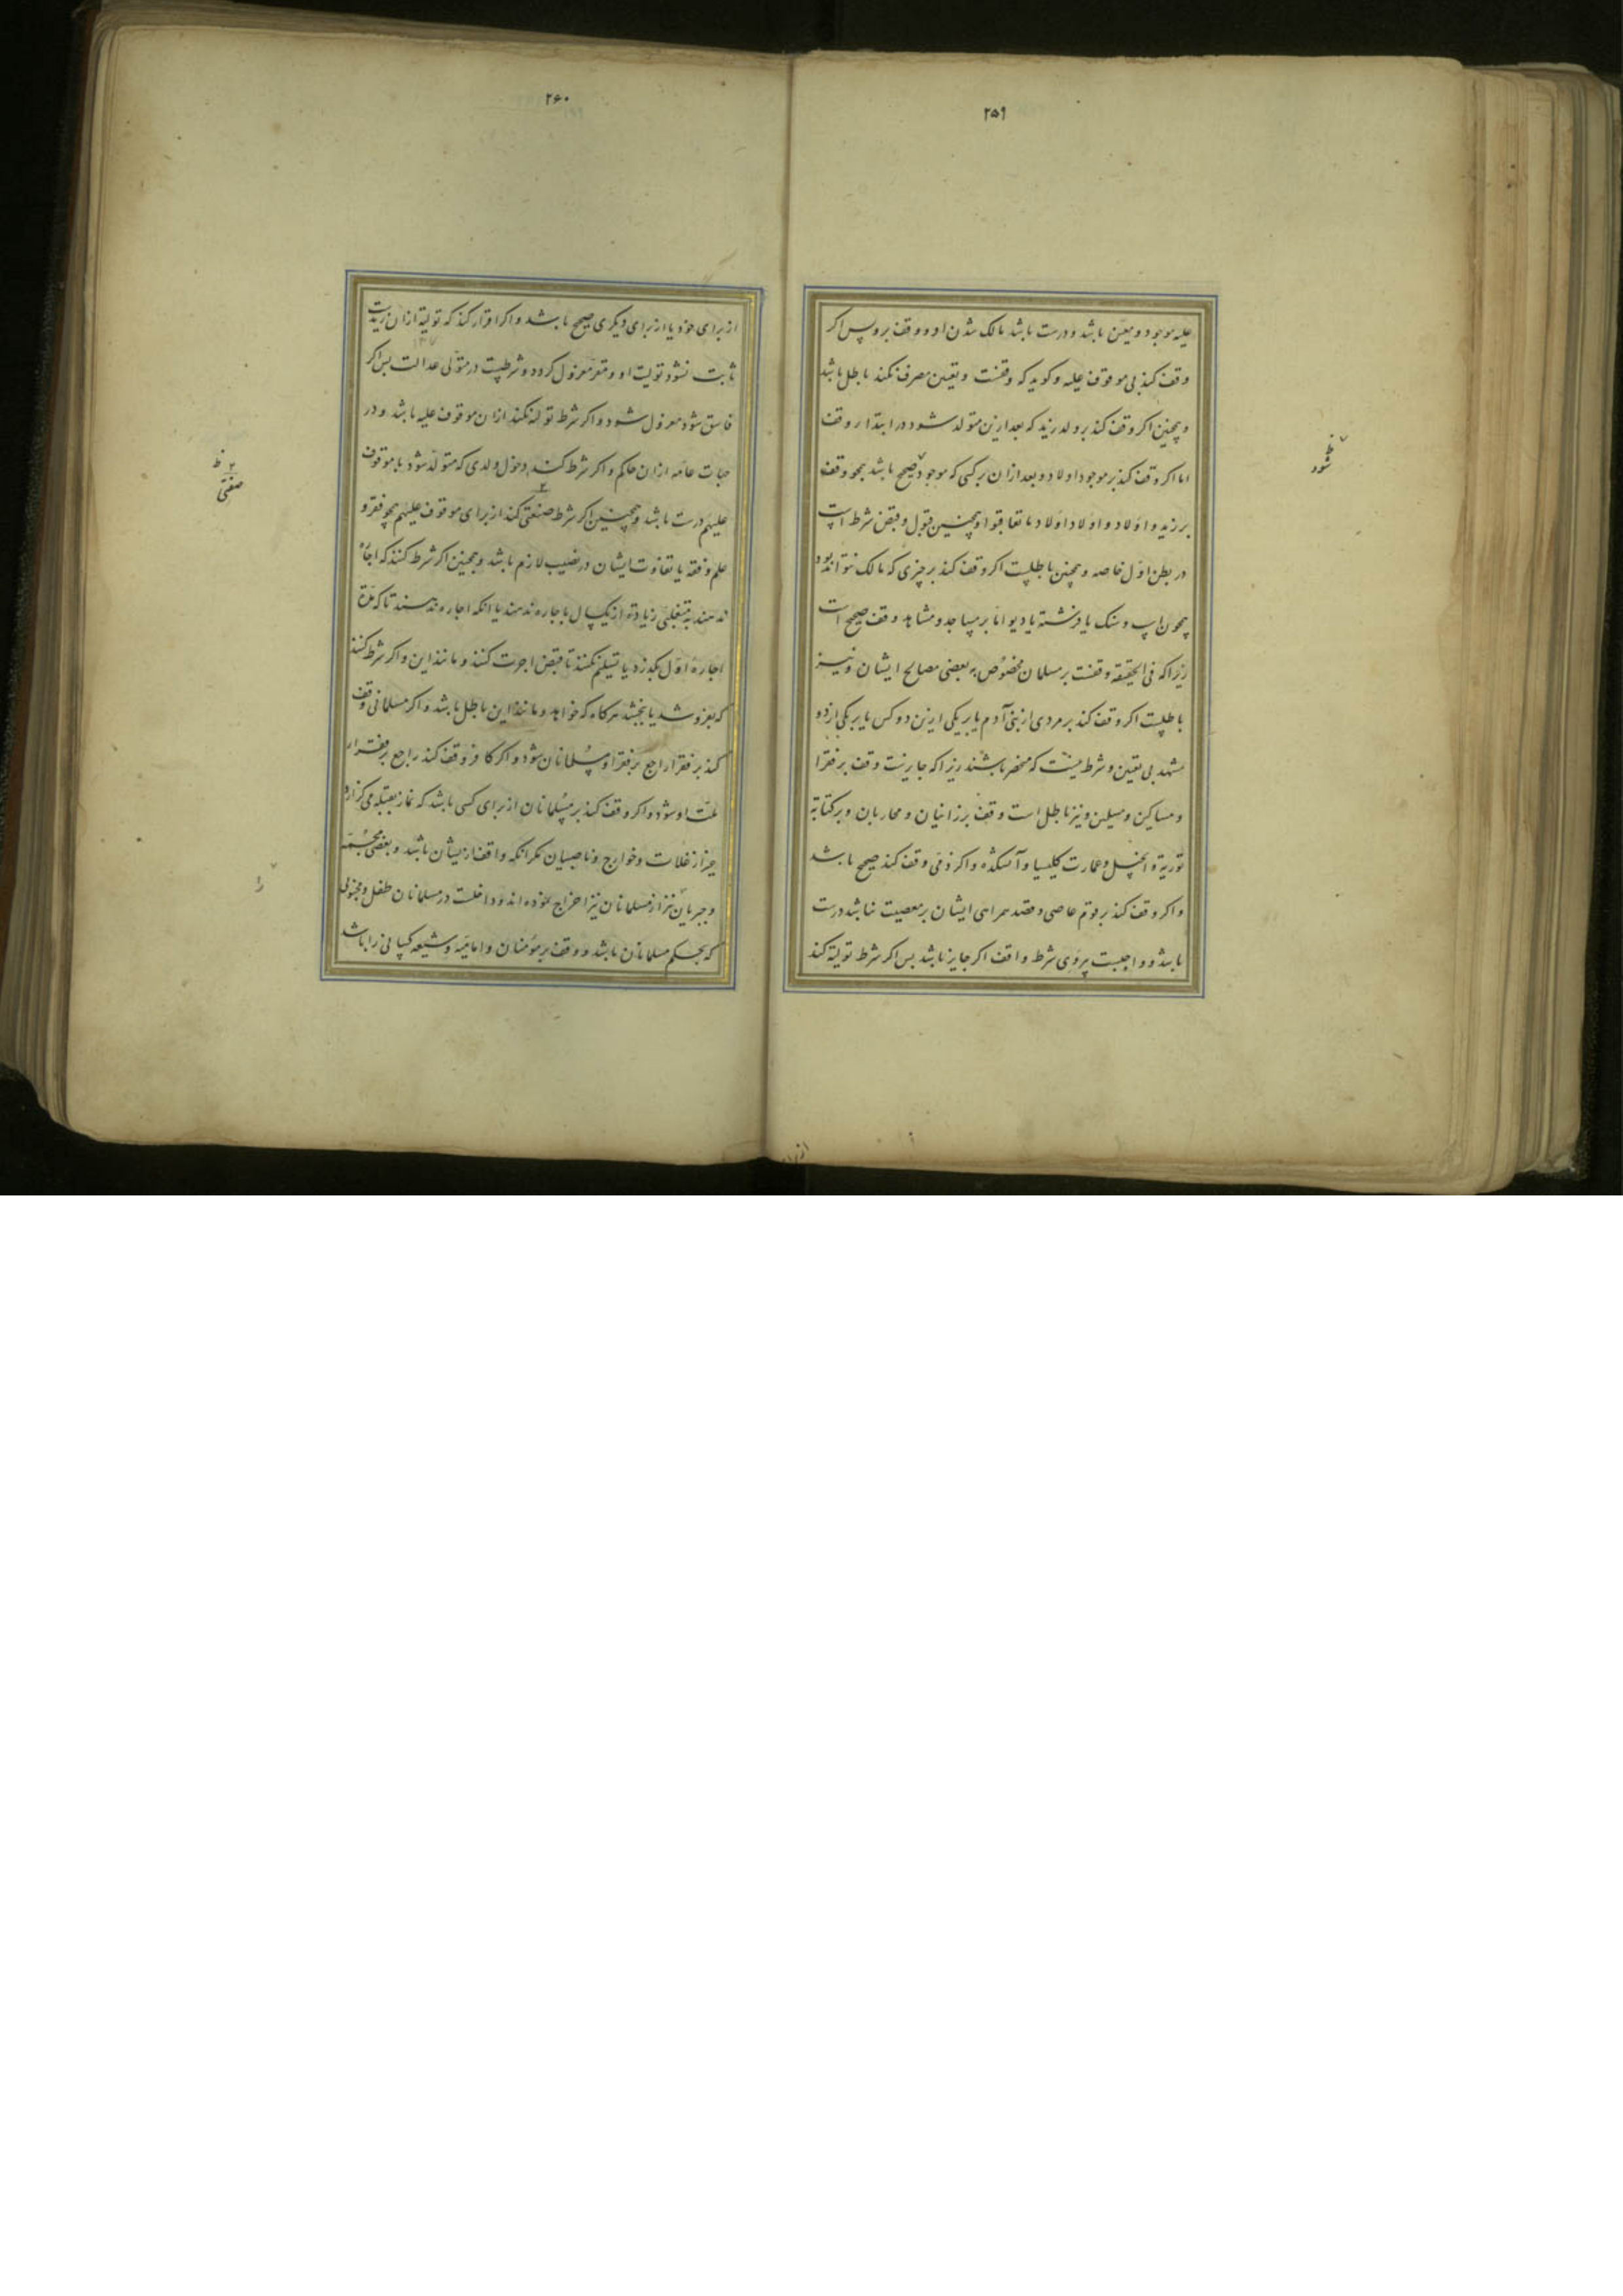 ۲۵۹
علیه موجود و معین باشد و درست باشد مالک شدن او و وقف برو پس اکر
وقف کند بی موقوف علیه و کوید که وقفست و تعیین مصرف نکند باطل باشد
و همچنین اکر وقف کند بر ولد زید که بعد ازین متولد شود در ابتداء وقف
اما اکر وقف کند بر موجود اولاد و بعد از ان بر کسی که موجود صحیح باشد همچو وقف
بر زید و اولاد و اولاد اولاد ما تعاقبوا و همچنین قبول و قبض شرط است
در بطن اول خاصه و همچنین باطلست اکر وقف کند بر چیزی که مالک نتواند بود
همچون اسب و سنک یا فرشته یا دیو اما بر مساجد و مشاهد وقف صحیح است
زیرا که فی الحقیقه وقفست بر مسلمانان مخصوص به بعضی مصالح ایشان و نیز
باطلست اکر وقف کند بر مردی از بنی آدم یا بر یکی ازین دو کس یا بر یکی از دو
مشهد بی تعیین و شرط نیست که منحصر باشند زیرا که جایزست وقف بر فقرا
و مساکین و مسلمین و نیز باطل است وقف بر زانیان و محاربان و بر کتابة
توریة و انجیل و عمارت کلیسیا و آتشکده و اکر ذمی وقف کند صحیح باشد
و اکر وقف کند بر قوم عاصی و قصد همراهی ایشان بر معصیت نباشد درست
باشد و واجبست پیروی شرط واقف اکر جایز باشد پس اکر شرط تولیة کند
ظ
شود
۲۶۰
از برای خود یا از برای دیکری صحیح باشد و اکر اقرار کند که تولیة از ان زیدست
ثابت نشود تولیت او و مقر معزول کردد و شرطیست در متولی عدالت پس اکر
فاسق شود معزول شود و اکر شرط تولیة نکند از ان موقوف علیه باشد و در
جهات عامه از ان حاکم و اکر شرط کند دخول ولدی که متولد شود با موقوف
علیهم درست باشد و همچنین اکر شرط صنعتی کند از برای موقوف علیهم همچو فقر و
علم و فقه یا تفاوت ایشان در نصیب لازم باشد و همچنین اکر شرط کنند که اجاره
ندهند به متغلبی زیاده از یکسال باجاره ندهند یا انکه اجاره ندهند تا که مدة
اجارهٔ اول بکذرد یا تسلیم نکنند تا قبض اجرت کنند و مانند این و اکر شرط کنند
که بفروشد یا ببخشد هرکاه که خواهد و مانند این باطل باشد و اکر مسلمانی وقف
کند بر فقرا راجع بر فقراء مسلمانان شود و اکر کافر وقف کند راجع بر فقراء
ملت او شود و اکر وقف کند بر مسلمانان از برای کسی باشد که نماز بقبله می کزارد
جز از غلات و خوارج و ناصبیان مکر انکه واقف از ایشان باشد و بعضی مجسمه
و جبریان نیز از مسلمانان نیز اخراج نموده اند و داخلست در مسلمانان طفل و مجنونی
که بحکم مسلمانان باشد و وقف بر مؤمنان و امامیه و شیعه کسانی را باشد
ظ
صنفی